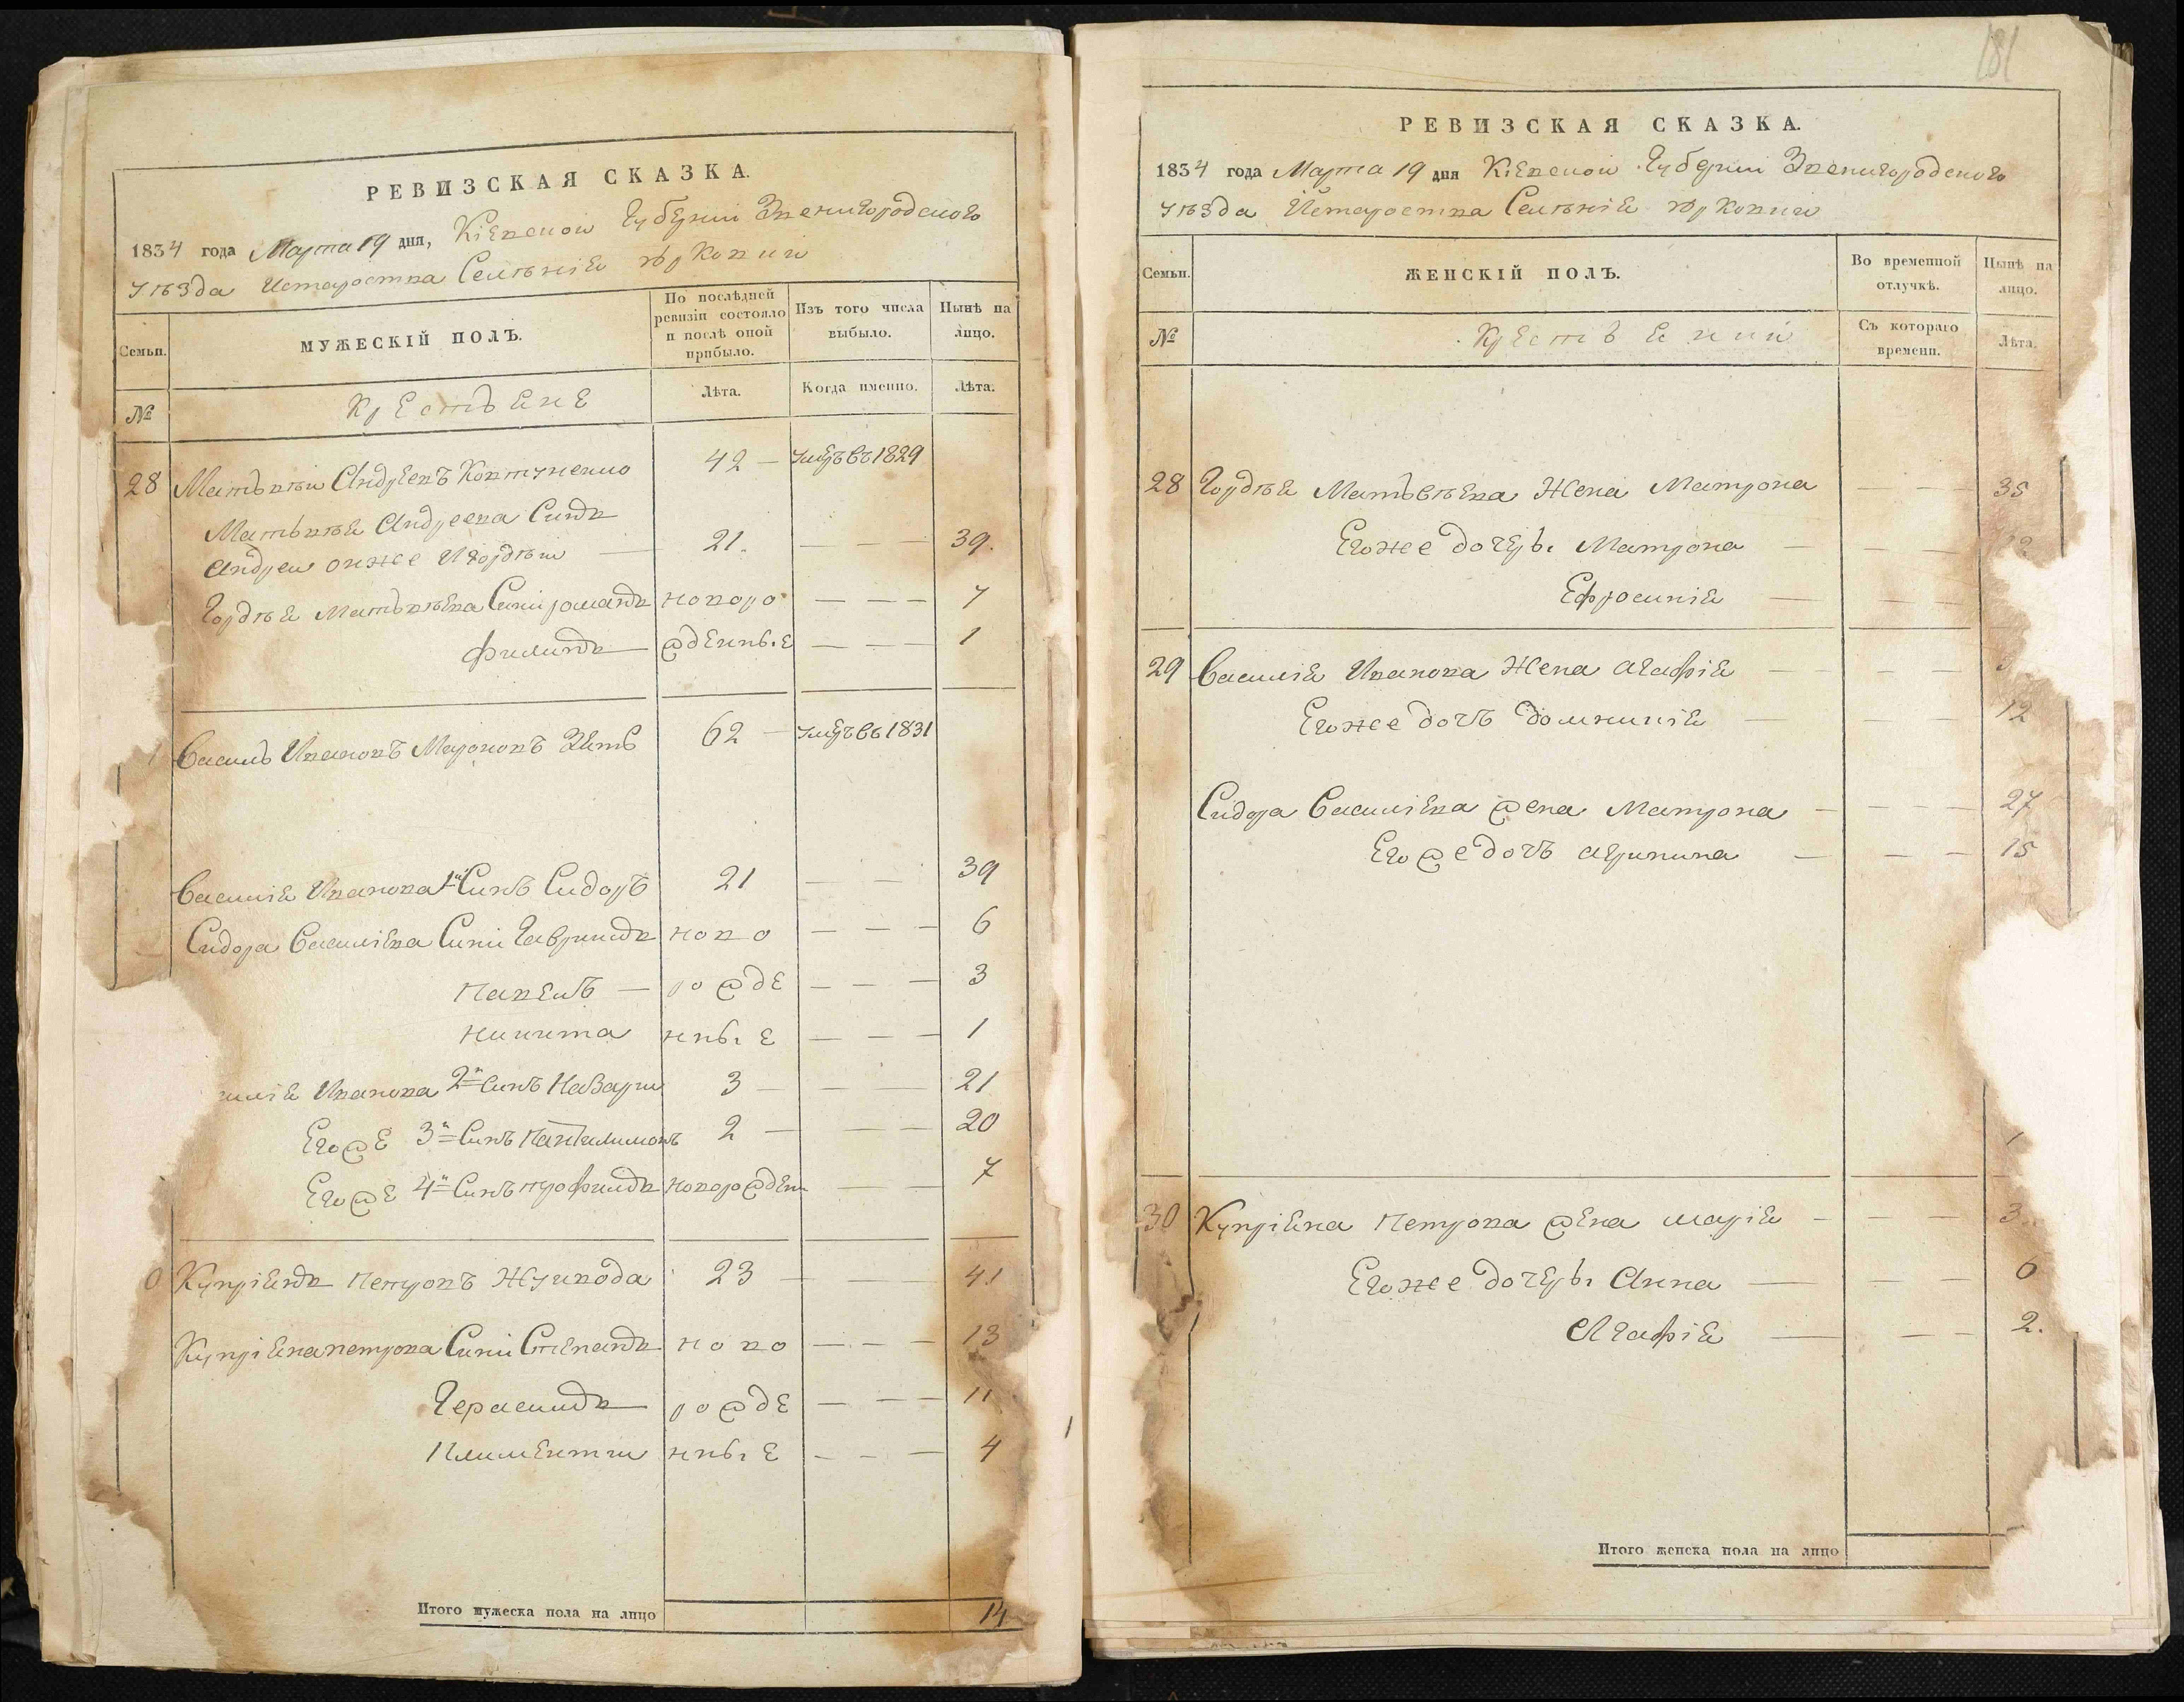 РЕВИЗСКАЯ СКАЗКА.
1834 года Марта 19 дня, Кіевской Губерніи Звенигородского
уѣзда Староства Селѣнія
Семьи.
МУЖЕСКІЙ ПОЛЪ.
По послѣдней ревизіи состояло и послѣ оной прибыло.
Изъ того числа выбыло.
Нынѣ на лицо.
№
Крестьяне
Лѣта.
Когда именно.
Лѣта.
28 Матьвѣй Андреевъ Ковтуненко 42 — умеръ въ 1829
Матьвѣя Андреева Синъ
Андрей онже Игордѣй — 21. — — — 39.
Гордѣя Матьвѣева Сини романъ новоро — — — 7
филипъ — жденные — — — 1
Василь Ивановъ Мироновъ Зять 62 — умеръ въ 1831
Василія Иванова 1й Синъ Сидоръ 21 — — 39
Сидора Василіева Сини Гавриилъ ново — — — 6
павелъ — рожде — — — 3
никита нные — — — 1
силія Иванова 2й Синъ Назарій 3 — — — 21
Егоже 3й Синъ Пантилимонъ 2 — — — 20
Егоже 4й Синъ трофимъ новорожден — — 7
0 Купріянъ петровъ Жуикода 23 — — 41
Купріяна петрова Сини Степанъ ново — — — 13
Герасимъ рожде — — — 11
Климентий нные — — — 4
Итого мужеска пола на лицо 14
181
РЕВИЗСКАЯ СКАЗКА.
1834 года Марта 19 дня Кіевской Губерніи Звенигородского
уѣзда Староства Селѣнія
Семьи.
ЖЕНСКІЙ ПОЛЪ.
Во временной отлучкѣ.
Нынѣ на лицо.
№
Крестьянки
Съ котораго времени.
Лѣта.
28 Гордѣя Матьвѣева Жена Матрона — — 35
Егоже дочеры Матрона — — —
Ефросинія — — —
29 Василія Иванова Жена агафія — — —
Егоже дочь домникія — — — 12
Сидора Василіева жена Матрона — — — — 27
Егоже дочь агрипина — — — — 15
30 Купріяна петрова жена марія — — — — 3
Егоже дочеры Анна — — — 6
Агафія — — — 2.
Итого женска пола на лицо